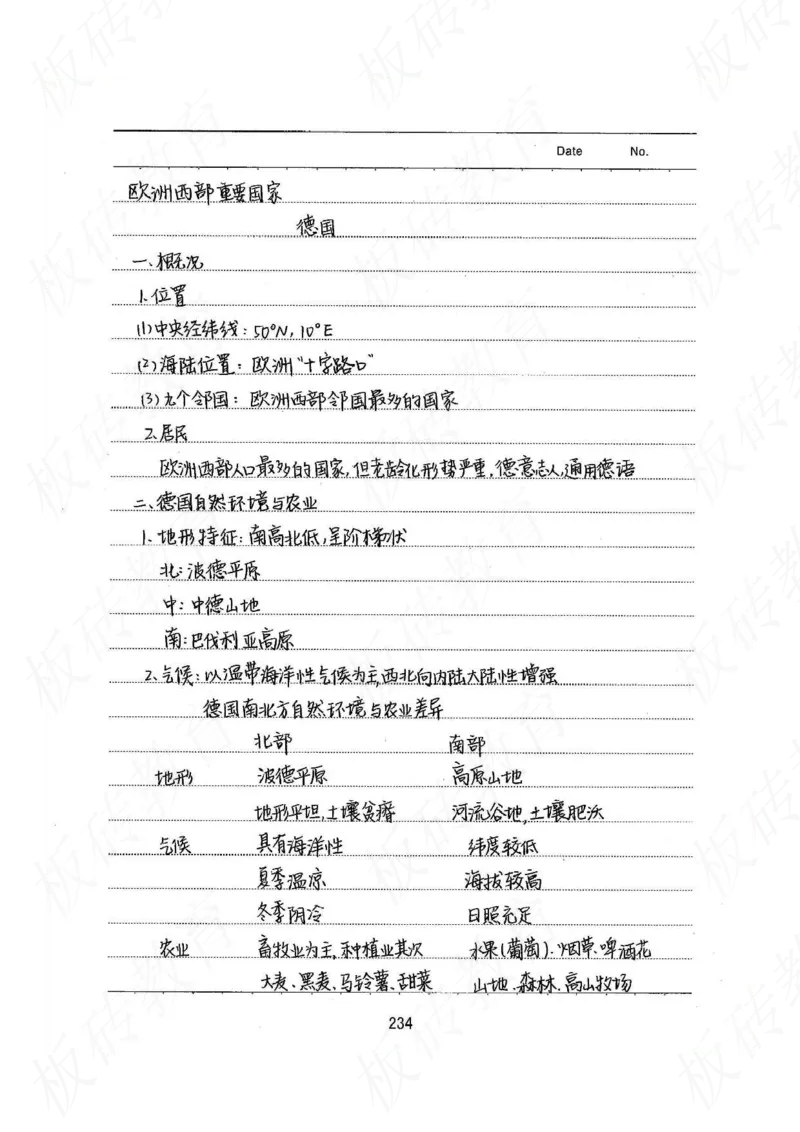 Date No.
欧洲西部重要国家
德国
一、概况
1.位置
(1)中央经纬线：50°N, 10°E
(2)海陆位置：欧洲"十字路口"
(3)九个邻国：欧洲西部邻国最多的国家
2.居民
欧洲西部人口最多的国家,但老龄化形势严重,德意志人,通用德语
二、德国自然环境与农业
1.地形特征：南高北低,呈阶梯状
北：波德平原
中：中德山地
南：巴伐利亚高原
2.气候：以温带海洋性气候为主,西北向内陆大陆性增强
德国南北方自然环境与农业差异
北部 南部
地形 波德平原 高原山地
地形平坦,土壤贫瘠 河流谷地,土壤肥沃
气候 具有海洋性 纬度较低
夏季温凉 海拔较高
冬季阴冷 日照充足
农业 畜牧业为主,种植业其次 水果(葡萄)、烟草、啤酒花
大麦、黑麦、马铃薯、甜菜 山地、森林、高山牧场
234
板砖教育